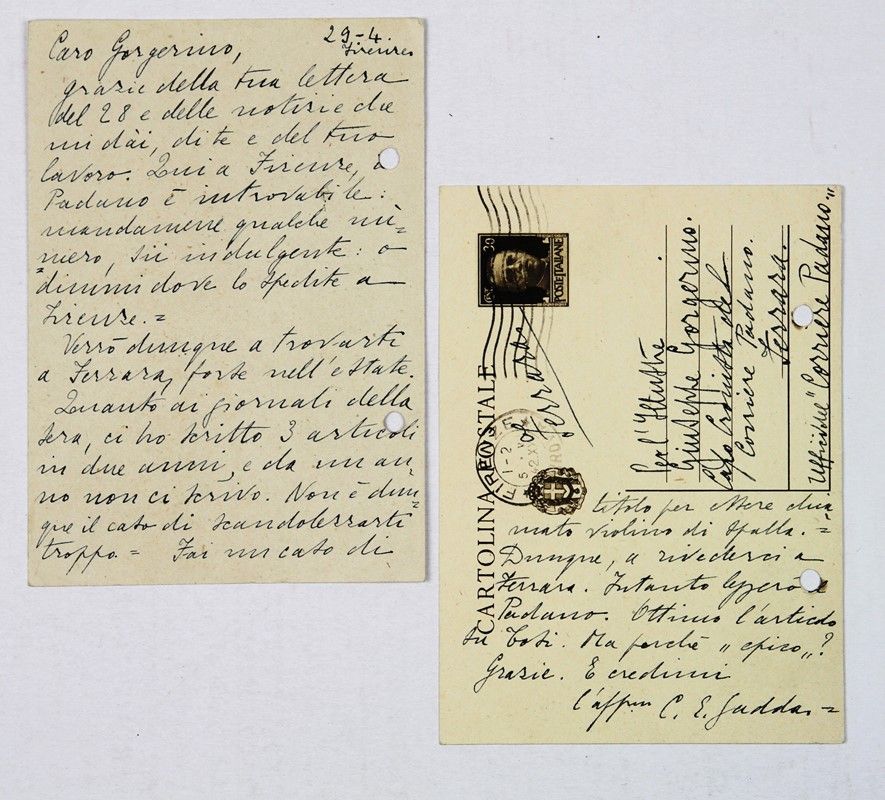 29-4.
Firenze
Caro Gorgerino,
grazie della tua lettera
del 28 e delle notizie che
mi dài, di te e del tuo
lavoro. Qui a Firenze, il
Padano è introvabile:
mandamene qualche nu=
=mero, sii indulgente: o
dimmi dove lo spedite a
Firenze.=
Verrò dunque a trovarti
a Ferrara, forse nell'estate.
Quanto ai giornali della
sera, ci ho scritto 3 articoli
in due anni, e da un an=
no non ci scrivo. Non è dun=
que il caso di scandolezzarti
troppo.= Fai un caso di
30
POSTE ITALIANE
CARTOLINA POSTALE
FIRENZE
Ferrara
Per l'Illustre
Giuseppe Gorgerino.
Capo Cronista del
Corriere Padano.
Ferrara.
Uffici del "Corriere Padano."
titolo per essere chia=
mato violino di spalla.=
Dunque, a rivederci a
Ferrara. Intanto leggerò il
Padano. Ottimo l'articolo
su Tosi. Ma perché "epico"?
Grazie. E credimi
l'affmo C. E. Gadda.=